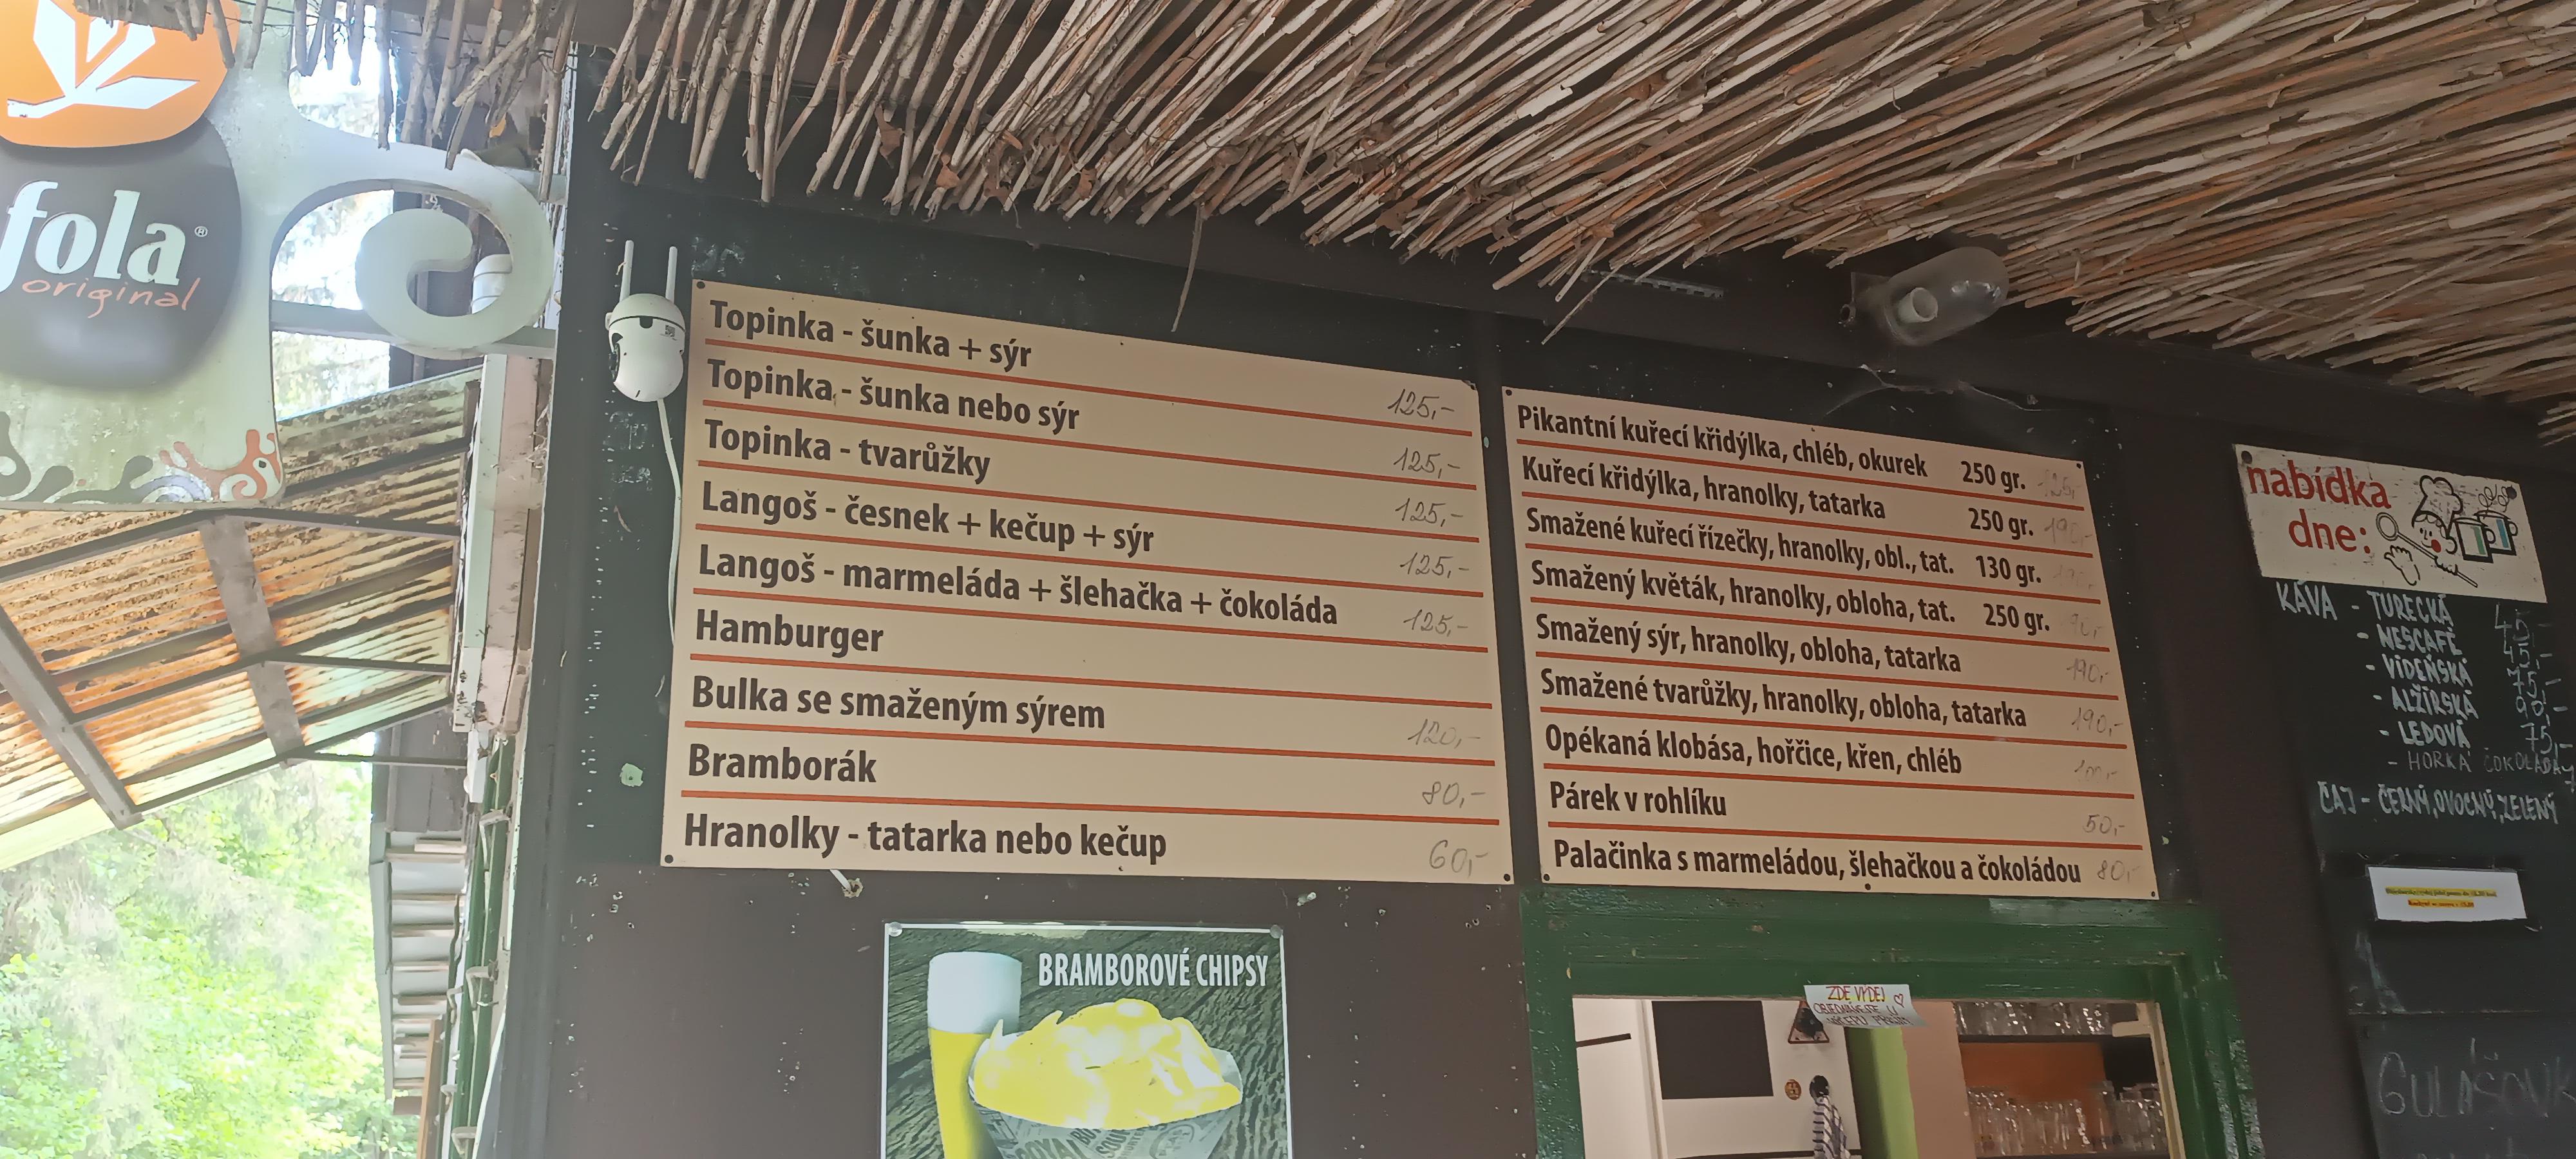 fola®
original
Topinka - šunka + sýr 125,-
Topinka - šunka nebo sýr 125,-
Topinka - tvarůžky 125,-
Langoš - česnek + kečup + sýr 125,-
Langoš - marmeláda + šlehačka + čokoláda 125,-
Hamburger
Bulka se smaženým sýrem 120,-
Bramborák 80,-
Hranolky - tatarka nebo kečup 60,-
Pikantní kuřecí křidýlka, chléb, okurek 250 gr.
Kuřecí křidýlka, hranolky, tatarka 250 gr. 190,-
Smažené kuřecí řízečky, hranolky, obl., tat. 130 gr.
Smažený květák, hranolky, obloha, tat. 250 gr.
Smažený sýr, hranolky, obloha, tatarka 190,-
Smažené tvarůžky, hranolky, obloha, tatarka 190,-
Opékaná klobása, hořčice, křen, chléb
Párek v rohlíku 50,-
Palačinka s marmeládou, šlehačkou a čokoládou 80,-
nabídka
dne:
KÁVA - TURECKÁ 45,-
- NESCAFÉ 45,-
- VÍDEŇSKÁ 75,-
- ALŽÍRSKÁ 90,-
- LEDOVÁ 75,-
- HORKÁ ČOKOLÁDA
ČAJ - ČERNÝ, OVOCNÝ, ZELENÝ
BRAMBOROVÉ CHIPSY
ZDE VÝDEJ
OBJEDNÁVEJTE U